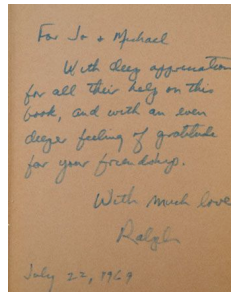 For Jo + Michael
With deep appreciation
for all their help on this
book, and with an even
deeper feeling of gratitude
for your friendship.
With much love
Ralph
July 22, 1969